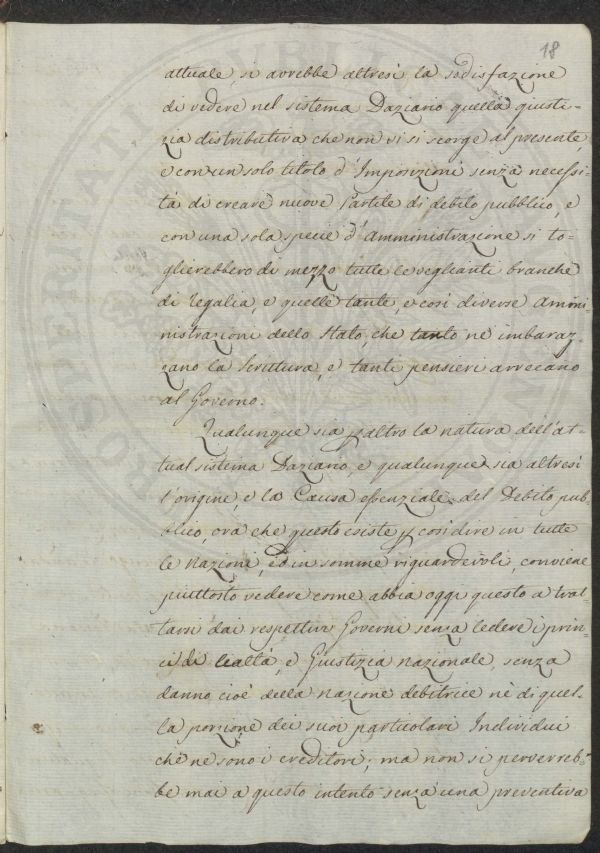 18
attuale, si avrebbe altresì la sodisfazione
di vedere nel sistema Daziario quella giusti-
zia distributiva che non vi si scorge al presente,
e con un solo titolo d'Imposizioni senza necessi-
tà di creare nuove Partite di debito pubblico, e
con una sola specie d'amministrazione si to-
glierebbero di mezzo tutte le veglianti branche
di regalia, e quelle tante, e così diverse Ammi-
nistrazioni dello Stato, che tanto ne imbaraz-
zano la Scrittura, e tanti pensieri arrecano
al Governo.
Qualunque sia p altro la natura dell'at-
tual sistema Daziario, e qualunque sia altresì
l'origine, e la Causa essenziale del Debito pub-
blico, ora che questo esiste p così dire in tutte
le Nazione, ed in somme riguardevoli, conviene
piuttosto vedere come abbia oggi questo a trat-
tarsi dai respettivi Governi senza ledere i prin-
cipi di lealtà, e Giustizia nazionale, senza
danno cioè della Nazione debitrice nè di quel-
la porzione dei suoi particolari Individui
che ne sono i creditori; ma non si perverreb-
be mai a questo intento senza una preventiva